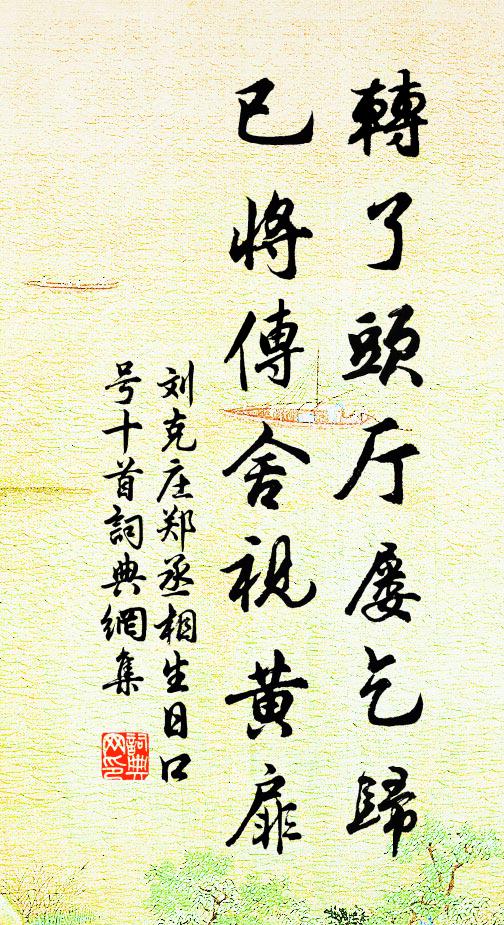 轉了頭厅屡乞歸
已將傳舍視黄扉
刘克庄郑丞相生日口
号十首詞典網集
詞典
网印